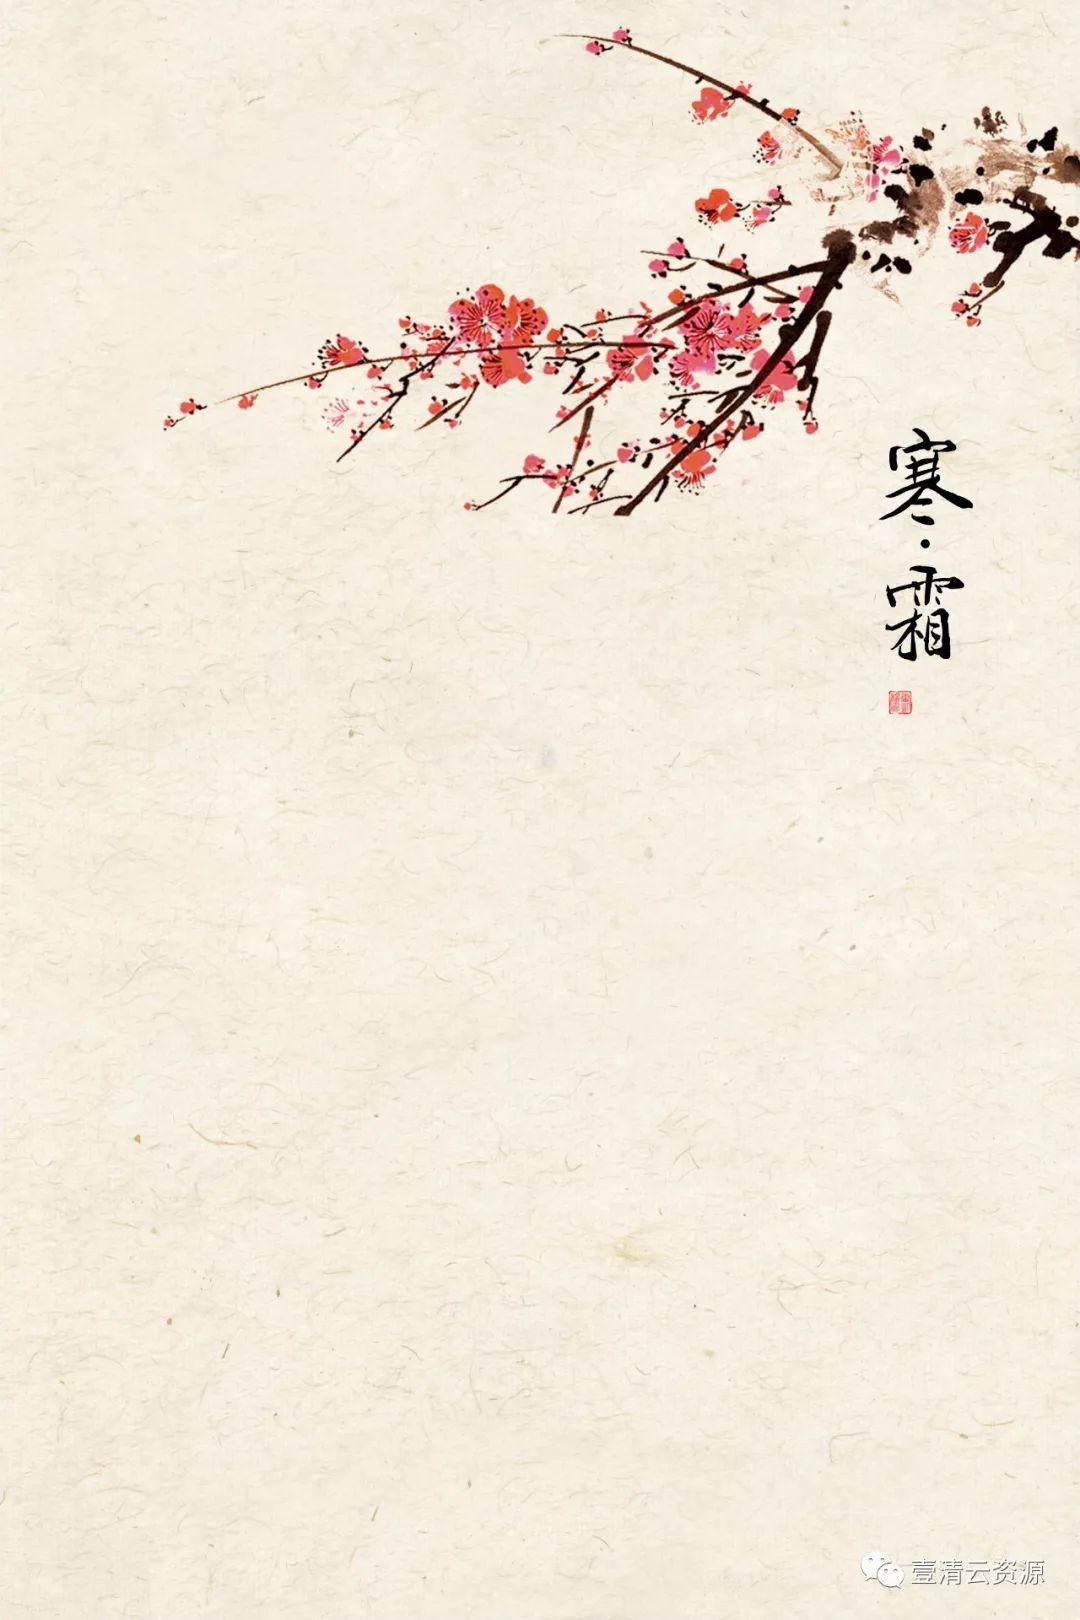 寒·霜
壹清云资源